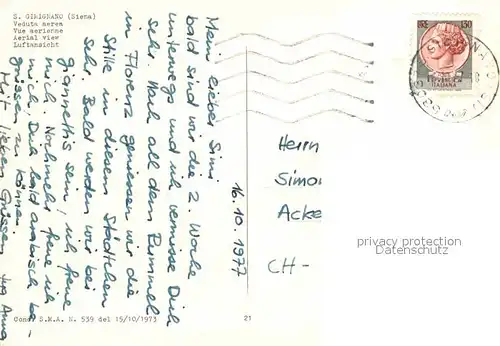 S. GIMIGNANO (Siena)
Veduta aerea
Vue aerienne
Aerial view
Luftansicht
Mein lieber Simi
bald sind wir die 2. Woche
unterwegs und ich vermisse Dich
sehr. Nach all dem Rummel
in Florenz geniessen wir die
Stille in diesem Städtchen
sehr. Bald werden wir bei
giannettis sein! ich freue
mich. Nochmehr freue ich
mich, Dich bald arabisch be-
grüssen zu können.
Mit lieben Grüssen Anna
16.10.1977
Herrn
Simo
Acke
CH-
150
REPUBBLICA
ITALIANA
privacy protection
Datenschutz
Conc. S.M.A. N. 539 del 15/10/1973
21